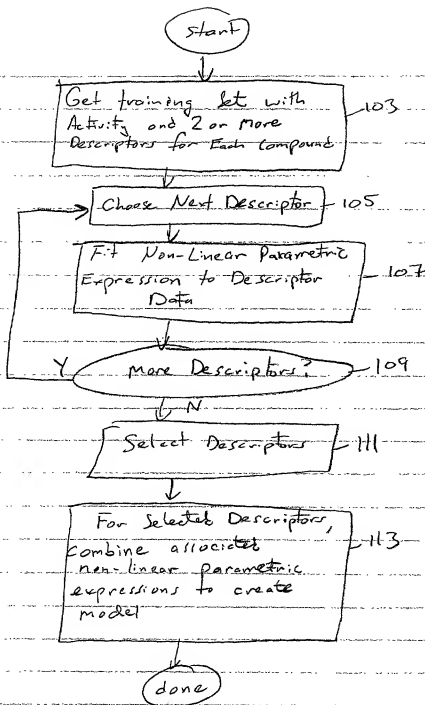 start
Get training set with
Activity and 2 or more
Descriptors for Each Compound
103
Choose Next Descriptor
105
Fit Non-Linear Parametric
Expression to Descriptor
Data
107
More Descriptors?
109
Y
N
Select Descriptors
111
For Selected Descriptors,
combine associated
non-linear parametric
expressions to create
model
113
done